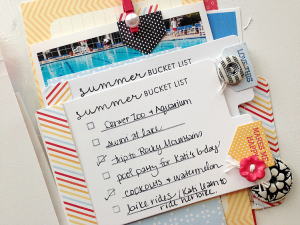 summer BUCKET LIST
summer BUCKET LIST
Zoo & Aquarium
swim at lake
trip to Rocky Mountains
pool party for Kati's b'day
cookouts & watermelon
bike rides / Kati learn to
ride her bike